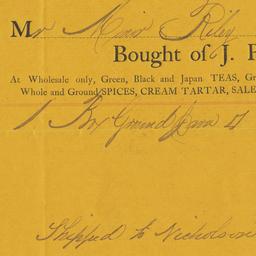 Mr Riley
Bought of J. F
At Wholesale only, Green, Black and Japan TEAS, Gr
Whole and Ground SPICES, CREAM TARTAR, SALE
1 Box Ground Java
Shipped to Nicholson